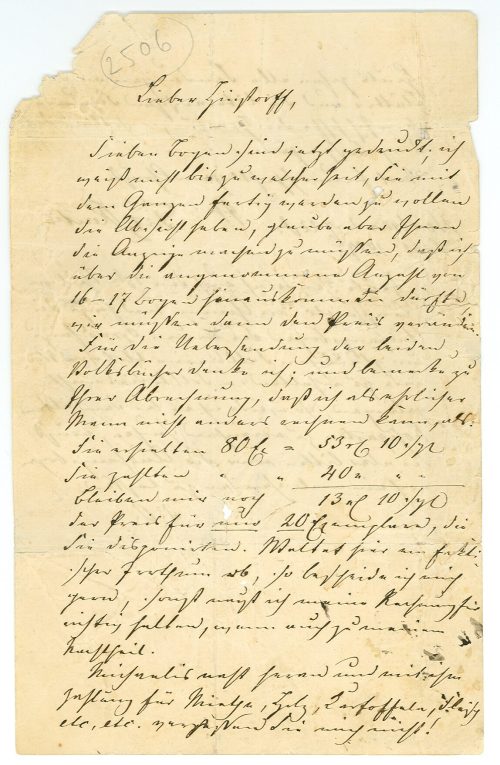 2506
Lieber Hinstorff,
Sieben Bogen sind jetzt gedruckt; ich
weiß nicht bis zu welcher Zeit, Sie mit
dem Ganzen fertig werden zu wollen
die Absicht haben, glaube aber Ihnen
die Anzeige machen zu müssen, daß ich
über die angenommene Anzahl von
16–17 Bogen hinauskommen dürfte,
wir müßten dann den Preis verändern.
Für die Uebersendung der beiden
Volksbücher danke ich, und bemerke zu
Ihrer Abrechnung, daß ich als ehrlicher
Mann nicht anders rechnen kann, als:
Sie erhielten 80 Ex = 53 rℓ 10 Sgl
Sie zahlten " " 40 " " "
bleiben mir noch 13 rℓ 10 Sgl
der Preis für nur 20 Exemplare, die
Sie disponirten. Waltet hier ein fakti-
scher Irrthum ob, so bescheide ich mich
gern, sonst muß ich meine Rechnung für
richtig halten, wenn auch zu meinem
Nachtheil.
Michaelis naht heran und mit ihm
Zahlung für Miethe, Holz, Kartoffeln, Fleisch
etc, etc. vergessen Sie mich nicht!